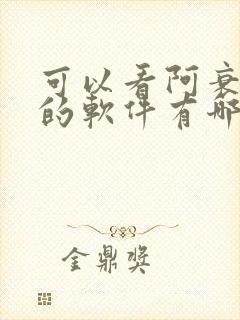 可以看阿衰
的軟件有哪
金鼎獎